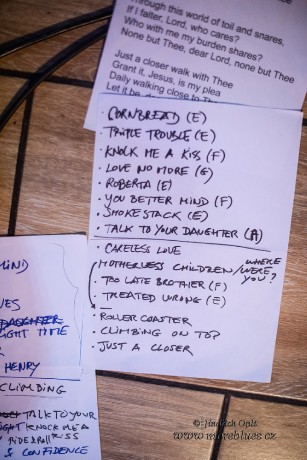 Through this world of toil and snares,
If I falter, Lord, who cares?
Who with me my burden shares?
None but Thee, dear Lord, none but Thee
Just a closer walk with Thee
Grant it, Jesus, is my plea
Daily walking close to Thee
Let it be,
CORNBREAD (E)
• TRIPLE TROUBLE (E)
• KNOCK ME A KISS (F)
• LOVE NO MORE (G)
• ROBERTA (E)
• YOU BETTER MIND (F)
• SMOKESTACK (E)
• TALK TO YOUR DAUGHTER (A)
• CARELESS LOVE
MOTHERLESS CHILDREN / WHERE WERE YOU?
• TOO LATE BROTHER (F)
• TREATED WRONG (E)
• ROLLER COASTER
• CLIMBING ON TOP
• JUST A CLOSER
MIND
DAUGHTER
HENRY
CLIMBING
TALK TO YOUR
KNOCK ME A
KISS
& CONFIDENCE
© Jindrich Oplt
www.moreblues.cz